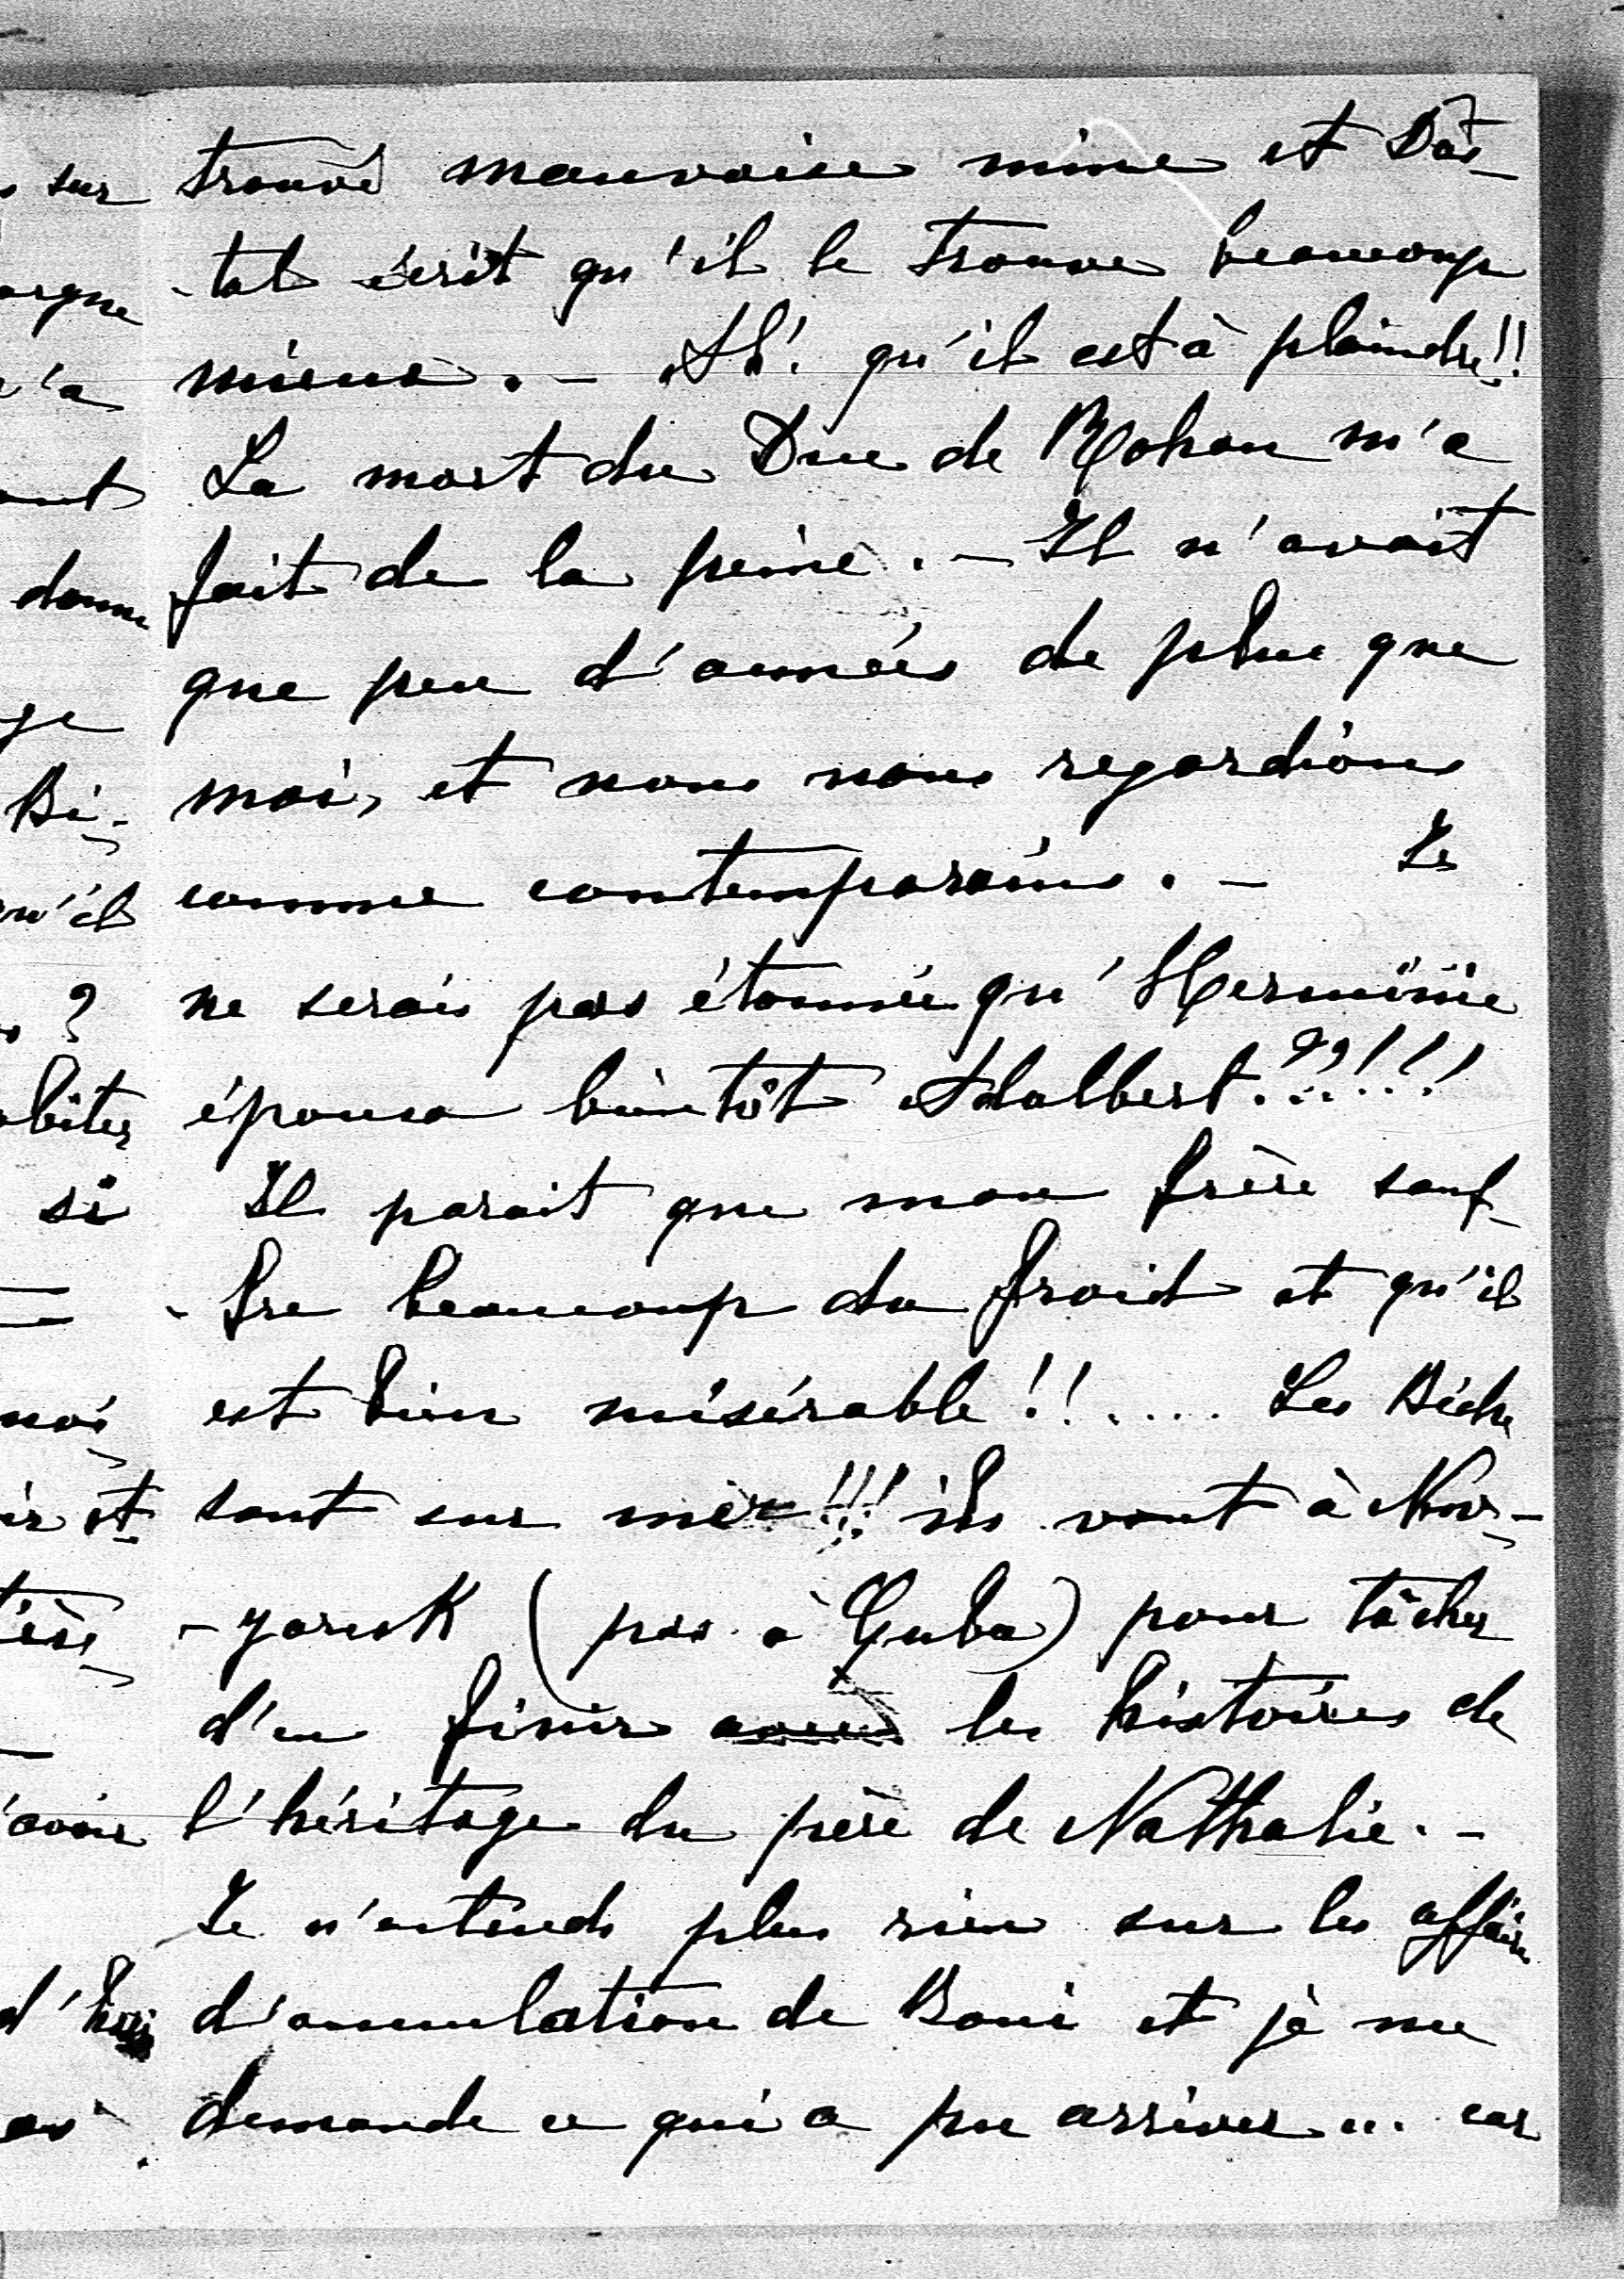 trouvé mauvaise mine et Dos-
-tal écrit qu'il le trouve beaucoup
mieux. - Ah! qu'il est à plaindre!!
La mort du Duc de Rohan m'a
fait de la peine. - Il n'avait
que peu d'années de plus que
moi, et nous nous regardions
comme contemporains. - Je
ne serais pas étonnée qu'Herminie
épousa bientôt Adalbert.??!!!
Il parait que mon frère souf-
-fre beaucoup du froid et qu'il
est bien misérable!!.... Les Béche
sont sur mer!!! ils vont à New-
-yorck (pas à Cuba) pour tâcher
d'en finir avec les histoires de
l'héritage du père de Nathalie. -
Je n'entends plus rien sur les affaires
d'annulation de Boni et je me
demande ce qui a pu arriver... car
sur
'a
donne
ge
Bi-
qu'il
?
si
moi
et
avoir